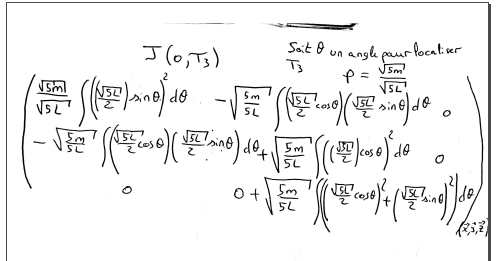 J(0,T₃)
Soit θ un angle pour localiser
T₃
ρ = √5m / √5L
√5m/√5L ∫((√5L/2) sinθ)² dθ  - √(5m/5L) ∫(√5L/2 cosθ)(√5L/2 sinθ) dθ  0
- √(5m/5L) ∫(√5L/2 cosθ)(√5L/2 sinθ) dθ  + √(5m/5L) ∫((√5L/2) cosθ)² dθ  0
0  0 + √(5m/5L) ∫((√5L/2 cosθ)² + (√5L/2 sinθ)²) dθ
(x⃗,y⃗,z⃗)